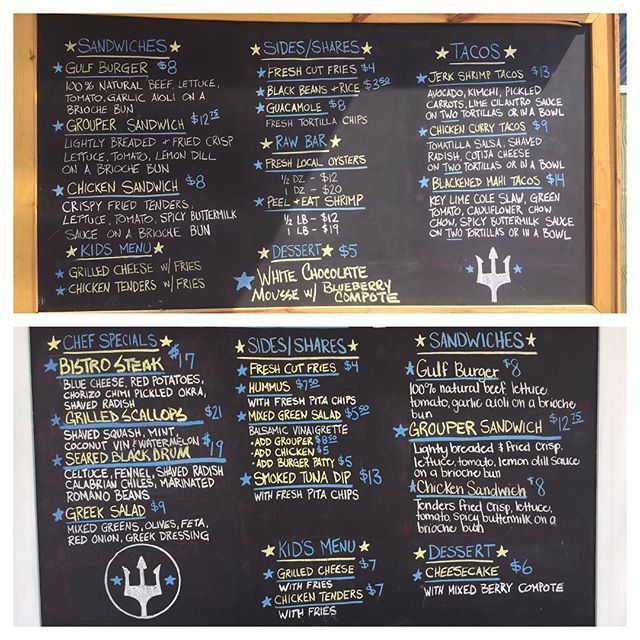 SANDWICHES
GULF BURGER $8
100% NATURAL BEEF, LETTUCE,
TOMATO, GARLIC AIOLI ON A
BRIOCHE BUN
GROUPER SANDWICH $12.75
LIGHTLY BREADED + FRIED CRISP
LETTUCE, TOMATO, LEMON DILL
ON A BRIOCHE BUN
CHICKEN SANDWICH $8
CRISPY FRIED TENDERS,
LETTUCE, TOMATO, SPICY BUTTERMILK
SAUCE ON A BRIOCHE BUN
KIDS MENU
GRILLED CHEESE W/ FRIES
CHICKEN TENDERS W/ FRIES
SIDES/SHARES
FRESH CUT FRIES $4
BLACK BEANS + RICE $3.50
GUACAMOLE $8
FRESH TORTILLA CHIPS
RAW BAR
FRESH LOCAL OYSTERS
1/2 DZ - $12
1 DZ - $20
PEEL + EAT SHRIMP
1/2 LB - $12
1 LB - $19
DESSERT $5
WHITE CHOCOLATE
MOUSSE W/ BLUEBERRY
COMPOTE
TACOS
JERK SHRIMP TACOS $13
AVOCADO, KIMCHI, PICKLED
CARROTS, LIME CILANTRO SAUCE
ON TWO TORTILLAS OR IN A BOWL
CHICKEN CURRY TACOS $9
TOMATILLA SALSA, SHAVED
RADISH, COTIJA CHEESE
ON TWO TORTILLAS OR IN A BOWL
BLACKENED MAHI TACOS $14
KEY LIME COLE SLAW, GREEN
TOMATO, CAULIFLOWER CHOW
CHOW, SPICY BUTTERMILK SAUCE
ON TWO TORTILLAS OR IN A BOWL
CHEF SPECIALS
BISTRO STEAK $17
BLUE CHEESE, RED POTATOES,
CHORIZO CHIMI PICKLED OKRA,
SHAVED RADISH
GRILLED SCALLOPS $21
SHAVED SQUASH, MINT,
COCONUT VIN & WATERMELON
SEARED BLACK DRUM $19
CELTUCE, FENNEL, SHAVED RADISH
CALABRIAN CHILES, MARINATED
ROMANO BEANS
GREEK SALAD $9
MIXED GREENS, OLIVES, FETA,
RED ONION, GREEK DRESSING
SIDES/SHARES
FRESH CUT FRIES $4
HUMMUS $7.50
WITH FRESH PITA CHIPS
MIXED GREEN SALAD $5.50
BALSAMIC VINAIGRETTE
• ADD GROUPER $8.50
• ADD CHICKEN $5
• ADD BURGER PATTY $5
SMOKED TUNA DIP $13
WITH FRESH PITA CHIPS
KID'S MENU
GRILLED CHEESE $7
WITH FRIES
CHICKEN TENDERS $7
WITH FRIES
SANDWICHES
Gulf Burger $8
100% natural beef lettuce,
tomato, garlic aioli on a brioche
bun
GROUPER SANDWICH $12.75
Lightly breaded & fried Crisp.
lettuce, tomato, lemon dill sauce
on a brioche bun
Chicken Sandwich $8
Tenders fried Crisp, lettuce,
tomato, spicy buttermilk on a
brioche bun
DESSERT
CHEESECAKE $6
WITH MIXED BERRY COMPOTE